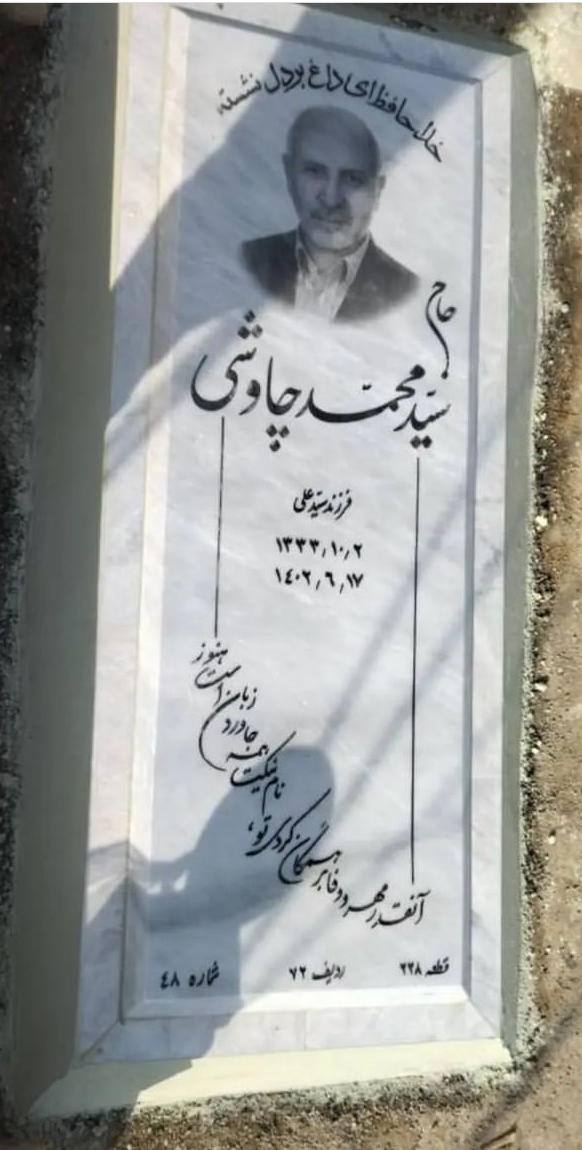 خداحافظ ای داغ بر دل نشسته
حاج
سیّد محمّد چاوشی
فرزند سیّد علی
۱۳۳۳٫۱۰٫۲
۱٤۰۲٫۶٫۱۷
آنقدر مهر و وفا بر همگان کردی تو،
نام نیکیت همه جا ورد زبان است هنوز
قطعه ۲۲۸ ردیف ۷۲ شماره ٤۸